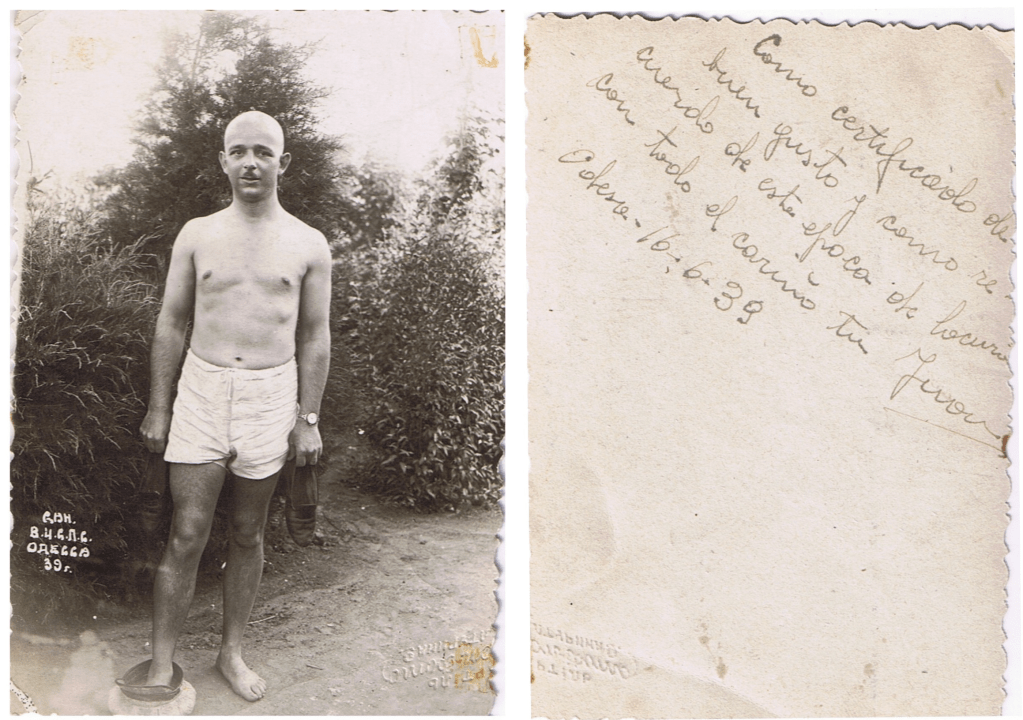 САН.
В.Ц.С.П.С.
ОДЕССА
39г.
Como certificado de
buen gusto y como re-
cuerdo de esta epoca de locura
con todo el cariño tu
Odessa-16-6-39